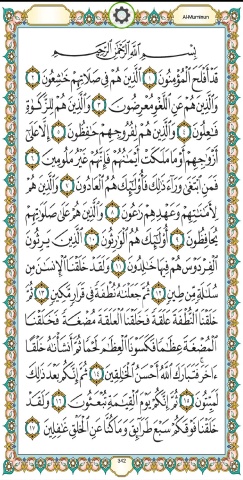 Al-Mu'minun
بِسْمِ اللَّهِ الرَّحْمَٰنِ الرَّحِيمِ
قَدْ أَفْلَحَ الْمُؤْمِنُونَ ١ الَّذِينَ هُمْ فِي صَلَاتِهِمْ خَاشِعُونَ ٢
وَالَّذِينَ هُمْ عَنِ اللَّغْوِ مُعْرِضُونَ ٣ وَالَّذِينَ هُمْ لِلزَّكَوٰةِ
فَاعِلُونَ ٤ وَالَّذِينَ هُمْ لِفُرُوجِهِمْ حَافِظُونَ ٥ إِلَّا عَلَىٰ
أَزْوَاجِهِمْ أَوْ مَا مَلَكَتْ أَيْمَانُهُمْ فَإِنَّهُمْ غَيْرُ مَلُومِينَ ٦
فَمَنِ ابْتَغَىٰ وَرَاءَ ذَٰلِكَ فَأُولَٰئِكَ هُمُ الْعَادُونَ ٧ وَالَّذِينَ هُمْ
لِأَمَانَاتِهِمْ وَعَهْدِهِمْ رَاعُونَ ٨ وَالَّذِينَ هُمْ عَلَىٰ صَلَوَاتِهِمْ
يُحَافِظُونَ ٩ أُولَٰئِكَ هُمُ الْوَارِثُونَ ١٠ الَّذِينَ يَرِثُونَ
الْفِرْدَوْسَ هُمْ فِيهَا خَالِدُونَ ١١ وَلَقَدْ خَلَقْنَا الْإِنسَانَ مِن
سُلَالَةٍ مِّن طِينٍ ١٢ ثُمَّ جَعَلْنَاهُ نُطْفَةً فِي قَرَارٍ مَّكِينٍ ١٣ ثُمَّ
خَلَقْنَا النُّطْفَةَ عَلَقَةً فَخَلَقْنَا الْعَلَقَةَ مُضْغَةً فَخَلَقْنَا
الْمُضْغَةَ عِظَامًا فَكَسَوْنَا الْعِظَامَ لَحْمًا ثُمَّ أَنشَأْنَاهُ خَلْقًا
آخَرَ فَتَبَارَكَ اللَّهُ أَحْسَنُ الْخَالِقِينَ ١٤ ثُمَّ إِنَّكُم بَعْدَ ذَٰلِكَ
لَمَيِّتُونَ ١٥ ثُمَّ إِنَّكُمْ يَوْمَ الْقِيَامَةِ تُبْعَثُونَ ١٦ وَلَقَدْ
خَلَقْنَا فَوْقَكُمْ سَبْعَ طَرَائِقَ وَمَا كُنَّا عَنِ الْخَلْقِ غَافِلِينَ ١٧
342